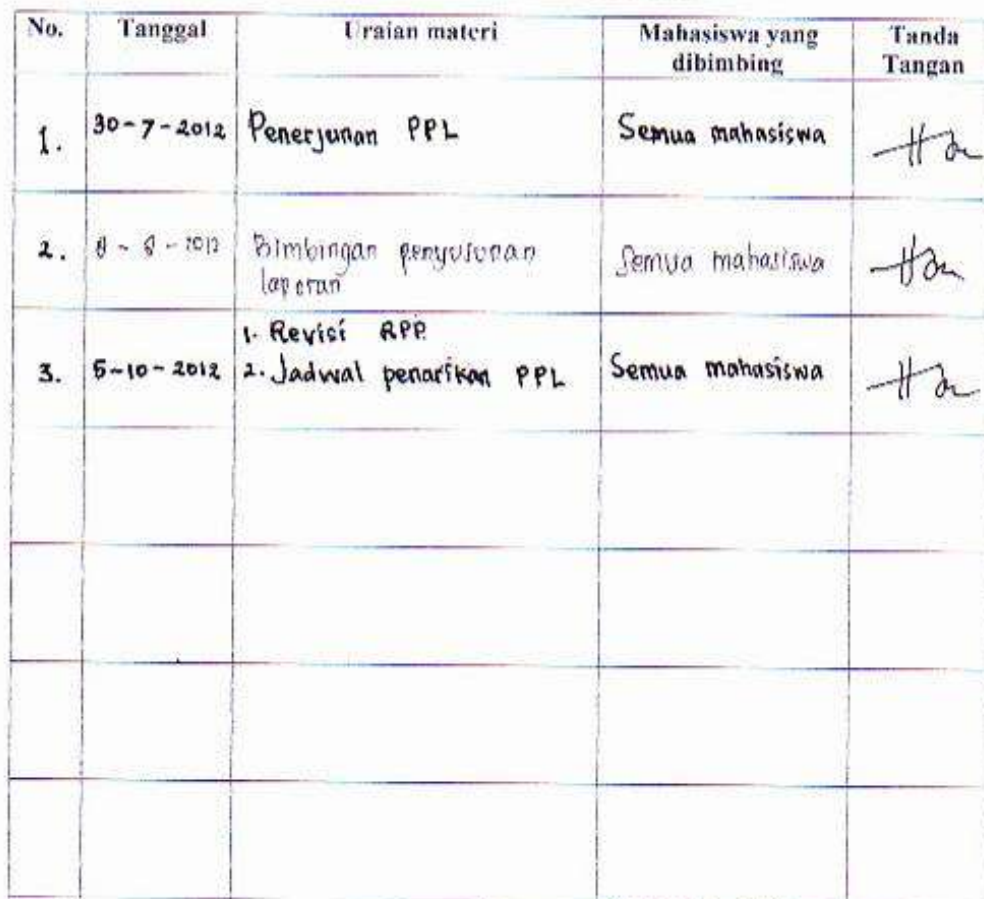 No. Tanggal Uraian materi Mahasiswa yang dibimbing Tanda Tangan
1. 30-7-2012 Penerjunan PPL Semua mahasiswa
2. 8 - 8 - 2012 Bimbingan penyusunan Semua mahasiswa
laporan
1. Revisi RPP.
3. 5-10-2012 2. Jadwal penarikan PPL Semua mahasiswa